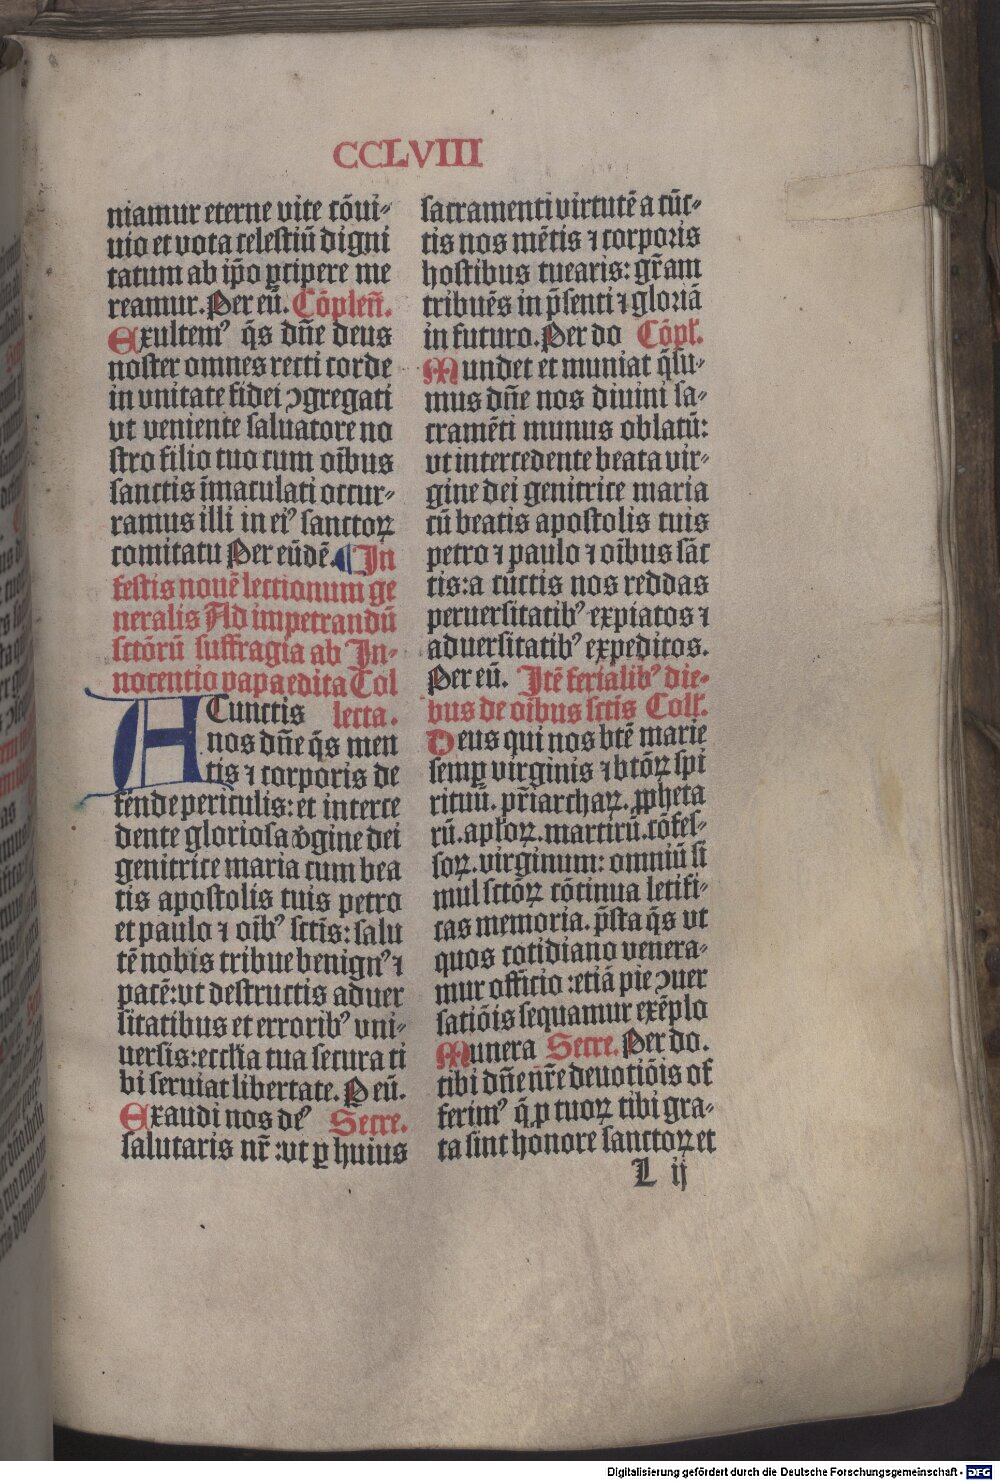 CCLVIII
niamur eterne vite cōui-
uio et vota celestiū digni
tatum ab ip̄o ꝑcipere me
reamur. Per eū. Cōpleñ.
Exultemꝰ q̄s dn̄e deus
noster omnes recti corde
in vnitate fidei ꝯgregati
vt veniente saluatore no
stro filio tuo cum oībus
sanctis īmaculati occur-
ramus illi in eiꝰ sanctoꝝ
comitatu Per eūdē. In
festis nouē lectionum ge
neralis Ad impetrandū
sctōrū suffragia ab In-
nocentio papa edita Col
lecta.
A Cunctis
nos dn̄e q̄s men
tis ⁊ corporis de
fende periculis: et interce
dente gloriosa v̄gine dei
genitrice maria cum bea
tis apostolis tuis petro
et paulo ⁊ oībꝰ sctīs: salu
tē nobis tribue benignꝰ ⁊
pacē: vt destructis aduer
sitatibus et erroribꝰ vni-
uersis: eccl̄ia tua secura ti
bi seruiat libertate. P eū.
Exaudi nos deꝰ Secre.
salutaris nr̄ : vt ꝑ huius
sacramenti virtutē a cūc-
tis nos mētis ⁊ corporis
hostibus tuearis: gr̄am
tribuēs in p̄senti ⁊ gloriā
in futuro. Per do Cōpl̄.
Mundet et muniat q̄su-
mus dn̄e nos diuini sa-
cramēti munus oblatū:
vt intercedente beata vir-
gine dei genitrice maria
cū beatis apostolis tuis
petro ⁊ paulo ⁊ oībus sāc
tis: a cūctis nos reddas
peruersitatibꝰ expiatos ⁊
aduersitatibꝰ expeditos.
Per eū. Itē ferialibꝰ die-
bus de oībus sctīs Coll̄.
Deus qui nos btē marie
semꝑ virginis ⁊ btōꝝ spi
rituū. pr̄iarchaꝝ. ꝓpheta
rū. apl̄oꝝ. martirū. cōfes-
soꝝ. virginum: omniū si
mul sctōꝝ cōtinua letifi-
cas memoria. p̄sta q̄s vt
quos cotidiano venera-
mur officio : etiā pie ꝯuer
satiōis sequamur exēplo
Munera Secre. Per do.
tibi dn̄e nr̄e deuotiōis of
ferimꝰ q̄ ꝑ tuoꝝ tibi gra-
ta sint honore sanctoꝝ et
L ij
Digitalisierung gefördert durch die Deutsche Forschungsgemeinschaft - DFG